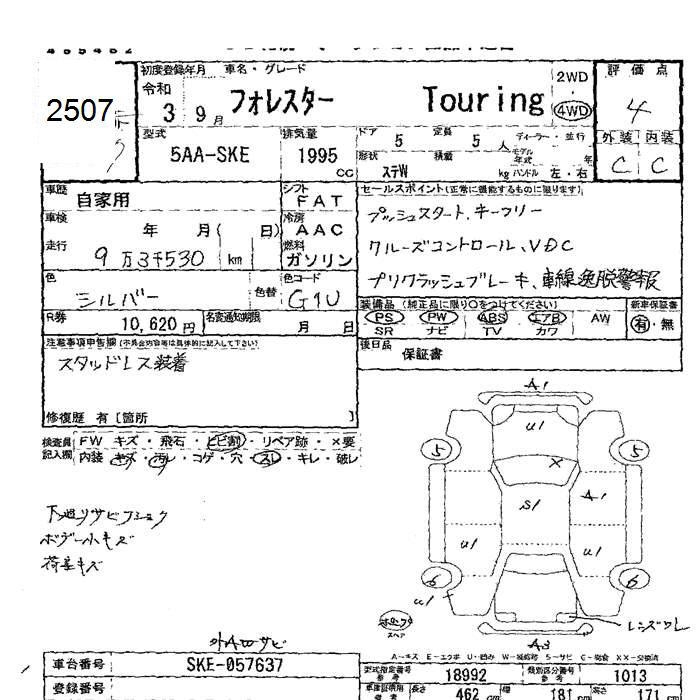 初度登録年月 車名・グレード 2WD ・ 4WD 評価点
2507 令和 3 9月 フォレスター Touring 4
型式 排気量 ドア 5 定員 5人 ディーラー・並行 外装 内装
5AA-SKE 1995 CC 形状 ステW 積載 kg モデル年式 年 ハンドル 左・右 C C
車歴 自家用 シフト FAT セールスポイント(正常に機能するものに限ります)
車検 年 月( 日) 冷房 AAC プッシュスタート、キーフリー
走行 9万3千530 km 燃料 ガソリン クルーズコントロール、VDC
色 シルバー 色替 色コード G1U プリクラッシュブレーキ、車線逸脱警報
R券 10,620円 名変通知期限 月 日 装備品(純正品に限り○をつけてください) 新車保証書
PS PW ABS エアB AW 有・無
SR ナビ TV カワ
注意事項申告欄(不具合内容等は具体的に記入して下さい) 後日品 保証書
スタッドレス装着
修復歴 有[箇所 ]
検査員記入欄 FW キズ・飛石・ヒビ割・リペア跡・×要
内装 キズ・汚レ・コゲ・穴・スレ・キレ・破レ
A1
U1
5 5
×
S1 A1
U1 U1
6 6
U1
レンズワレ
スペア
A3
下廻リサビ
ボデー小キズ
荷室キズ
A-キズ E-エクボ U-凹み W-補修跡 S-サビ C-腐食 XX-交換済
車台番号 SKE-057637 型式指定番号 参考 18992 類別区分番号 参考 1013
登録番号 長さ 462 cm 幅 181 cm 高さ 171 cm